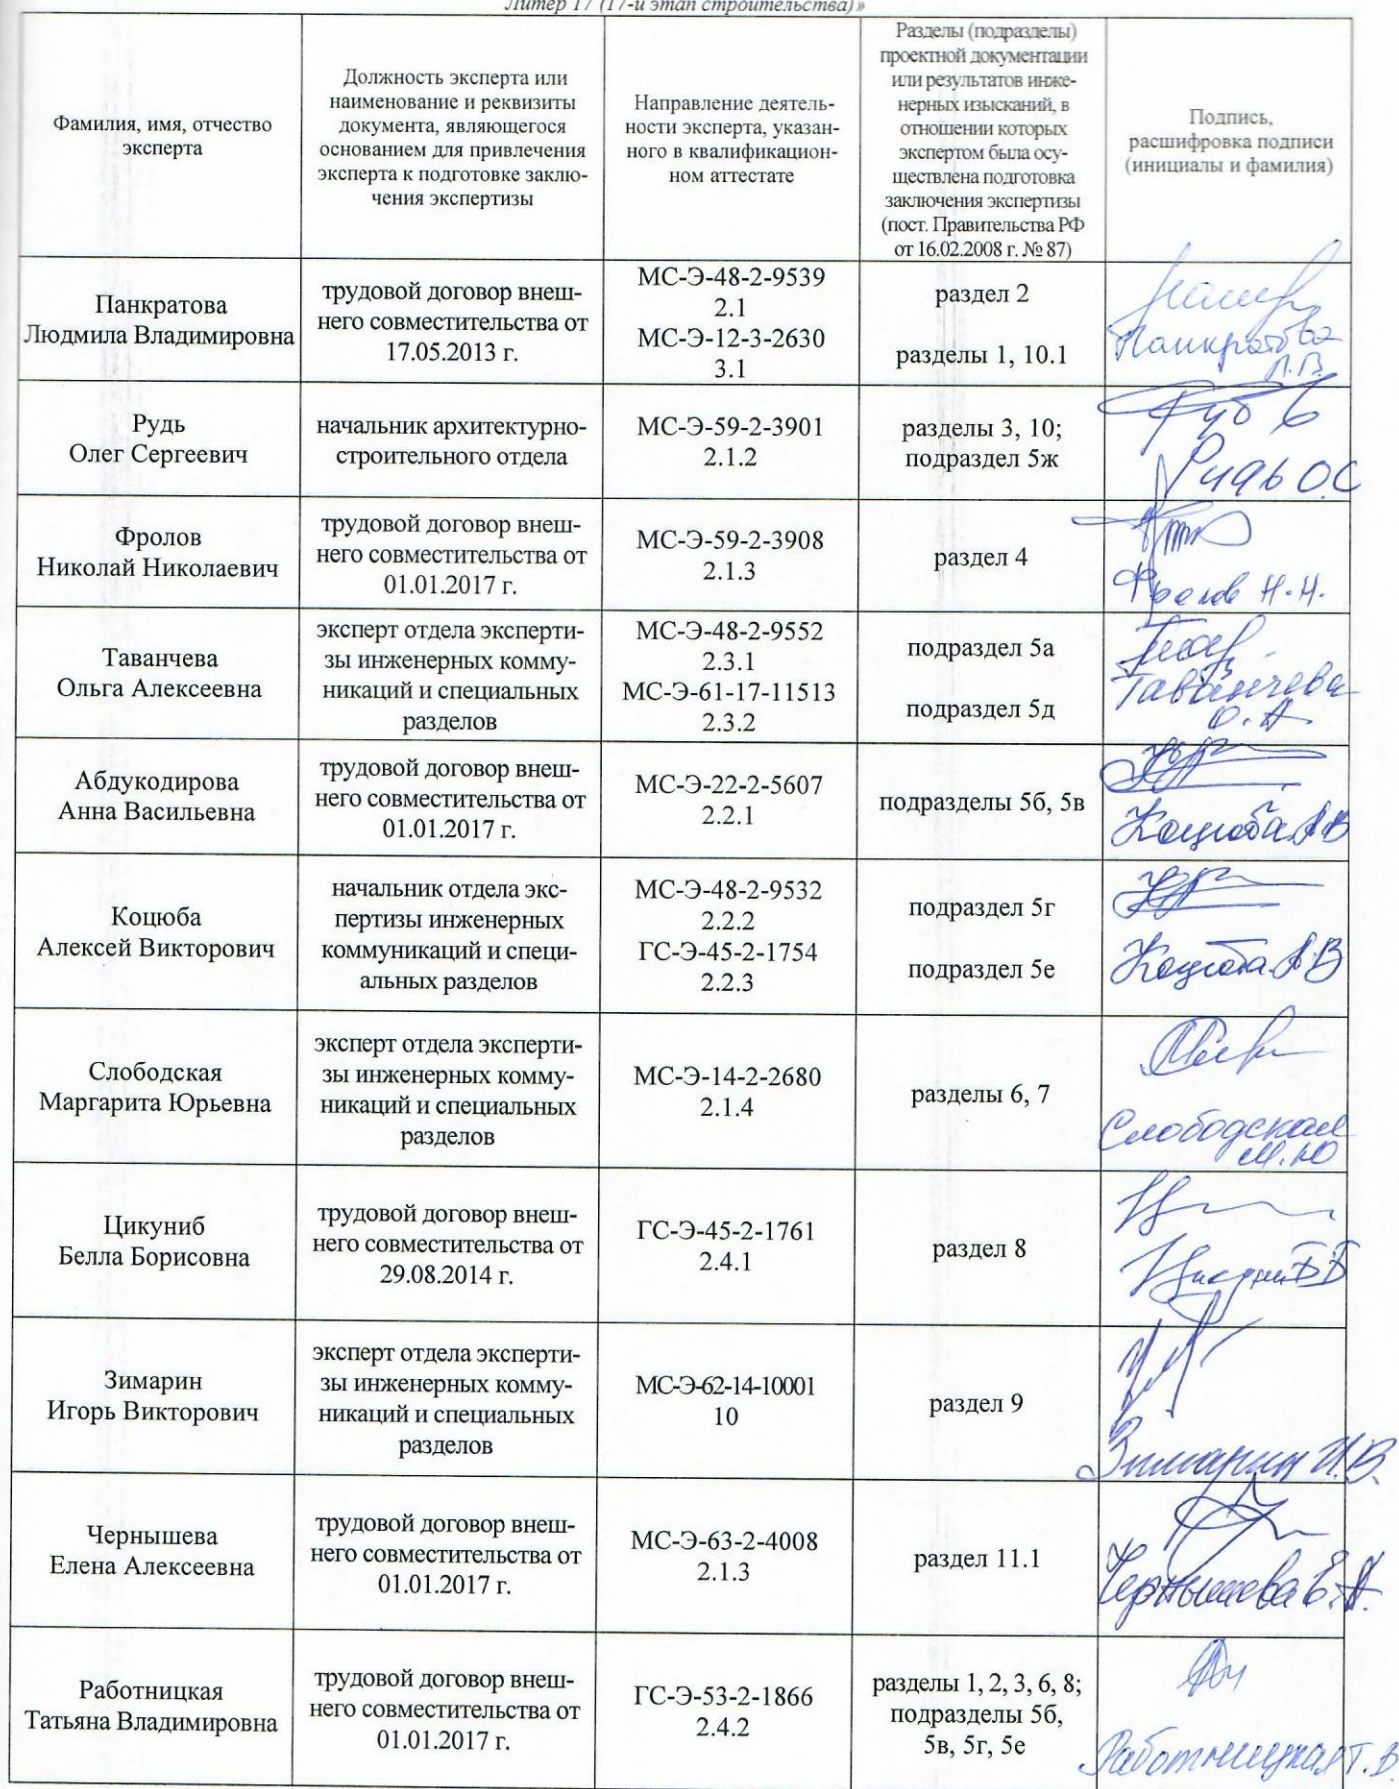 Литер 17 (17-й этап строительства)»
Фамилия, имя, отчество
эксперта
Должность эксперта или
наименование и реквизиты
документа, являющегося
основанием для привлечения
эксперта к подготовке заклю-
чения экспертизы
Направление деятель-
ности эксперта, указан-
ного в квалификацион-
ном аттестате
Разделы (подразделы)
проектной документации
или результатов инже-
нерных изысканий, в
отношении которых
экспертом была осу-
ществлена подготовка
заключения экспертизы
(пост. Правительства РФ
от 16.02.2008 г. № 87)
Подпись,
расшифровка подписи
(инициалы и фамилия)
Панкратова
Людмила Владимировна
трудовой договор внеш-
него совместительства от
17.05.2013 г.
МС-Э-48-2-9539
2.1
МС-Э-12-3-2630
3.1
раздел 2
разделы 1, 10.1
Панкратова
Л.В.
Рудь
Олег Сергеевич
начальник архитектурно-
строительного отдела
МС-Э-59-2-3901
2.1.2
разделы 3, 10;
подраздел 5ж
Рудь О.С
Фролов
Николай Николаевич
трудовой договор внеш-
него совместительства от
01.01.2017 г.
МС-Э-59-2-3908
2.1.3
раздел 4
Фролов Н.Н.
Таванчева
Ольга Алексеевна
эксперт отдела эксперти-
зы инженерных комму-
никаций и специальных
разделов
МС-Э-48-2-9552
2.3.1
МС-Э-61-17-11513
2.3.2
подраздел 5а
подраздел 5д
Таванчева
О.А
Абдукодирова
Анна Васильевна
трудовой договор внеш-
него совместительства от
01.01.2017 г.
МС-Э-22-2-5607
2.2.1
подразделы 5б, 5в
Коцюба А.В
Коцюба
Алексей Викторович
начальник отдела экс-
пертизы инженерных
коммуникаций и специ-
альных разделов
МС-Э-48-2-9532
2.2.2
ГС-Э-45-2-1754
2.2.3
подраздел 5г
подраздел 5е
Коцюба А.В
Слободская
Маргарита Юрьевна
эксперт отдела эксперти-
зы инженерных комму-
никаций и специальных
разделов
МС-Э-14-2-2680
2.1.4
разделы 6, 7
Слободская
М.Ю
Цикуниб
Белла Борисовна
трудовой договор внеш-
него совместительства от
29.08.2014 г.
ГС-Э-45-2-1761
2.4.1
раздел 8
Цикуниб ББ
Зимарин
Игорь Викторович
эксперт отдела эксперти-
зы инженерных комму-
никаций и специальных
разделов
МС-Э-62-14-10001
10
раздел 9
Зимарин И.В.
Чернышева
Елена Алексеевна
трудовой договор внеш-
него совместительства от
01.01.2017 г.
МС-Э-63-2-4008
2.1.3
раздел 11.1
Чернышева Е.А.
Работницкая
Татьяна Владимировна
трудовой договор внеш-
него совместительства от
01.01.2017 г.
ГС-Э-53-2-1866
2.4.2
разделы 1, 2, 3, 6, 8;
подразделы 5б,
5в, 5г, 5е
Работницкая Т.В.